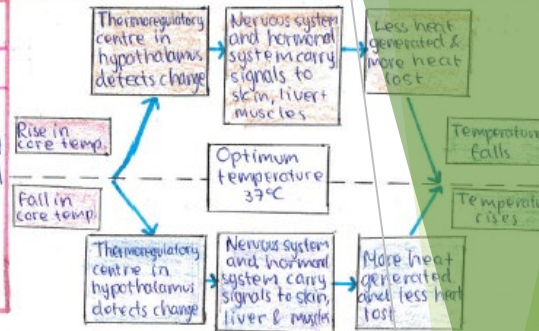 Thermoregulatory
centre in
hypothalamus
detects change
Nervous system
and hormonal
system carry
signals to
skin, liver +
muscles
Less heat
generated &
more heat
lost
Rise in
core temp.
Optimum
temperature
37°C
Temperature
falls
Fall in
core temp.
rises
Thermoregulatory
centre in
hypothalamus
detects change
Nervous system
and hormonal
system carry
signals to skin,
liver & muscles
More heat
generated
and less heat
lost